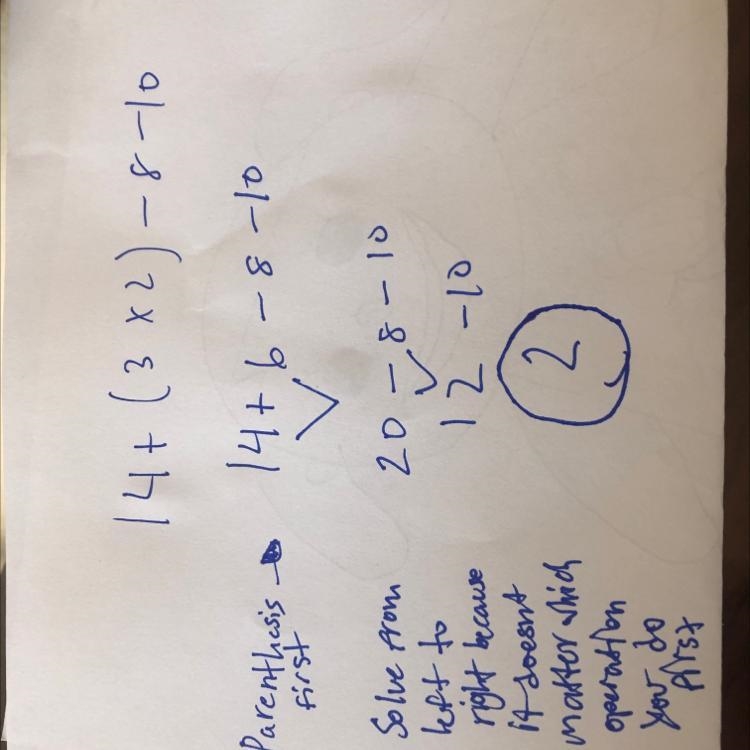 14 + (3 x 2) - 8 - 10
Parenthesis
first
14 + 6 - 8 - 10
20 - 8 - 10
12 - 10
2
Solve from
left to
right because
it doesnt
matter which
operation
you do
first